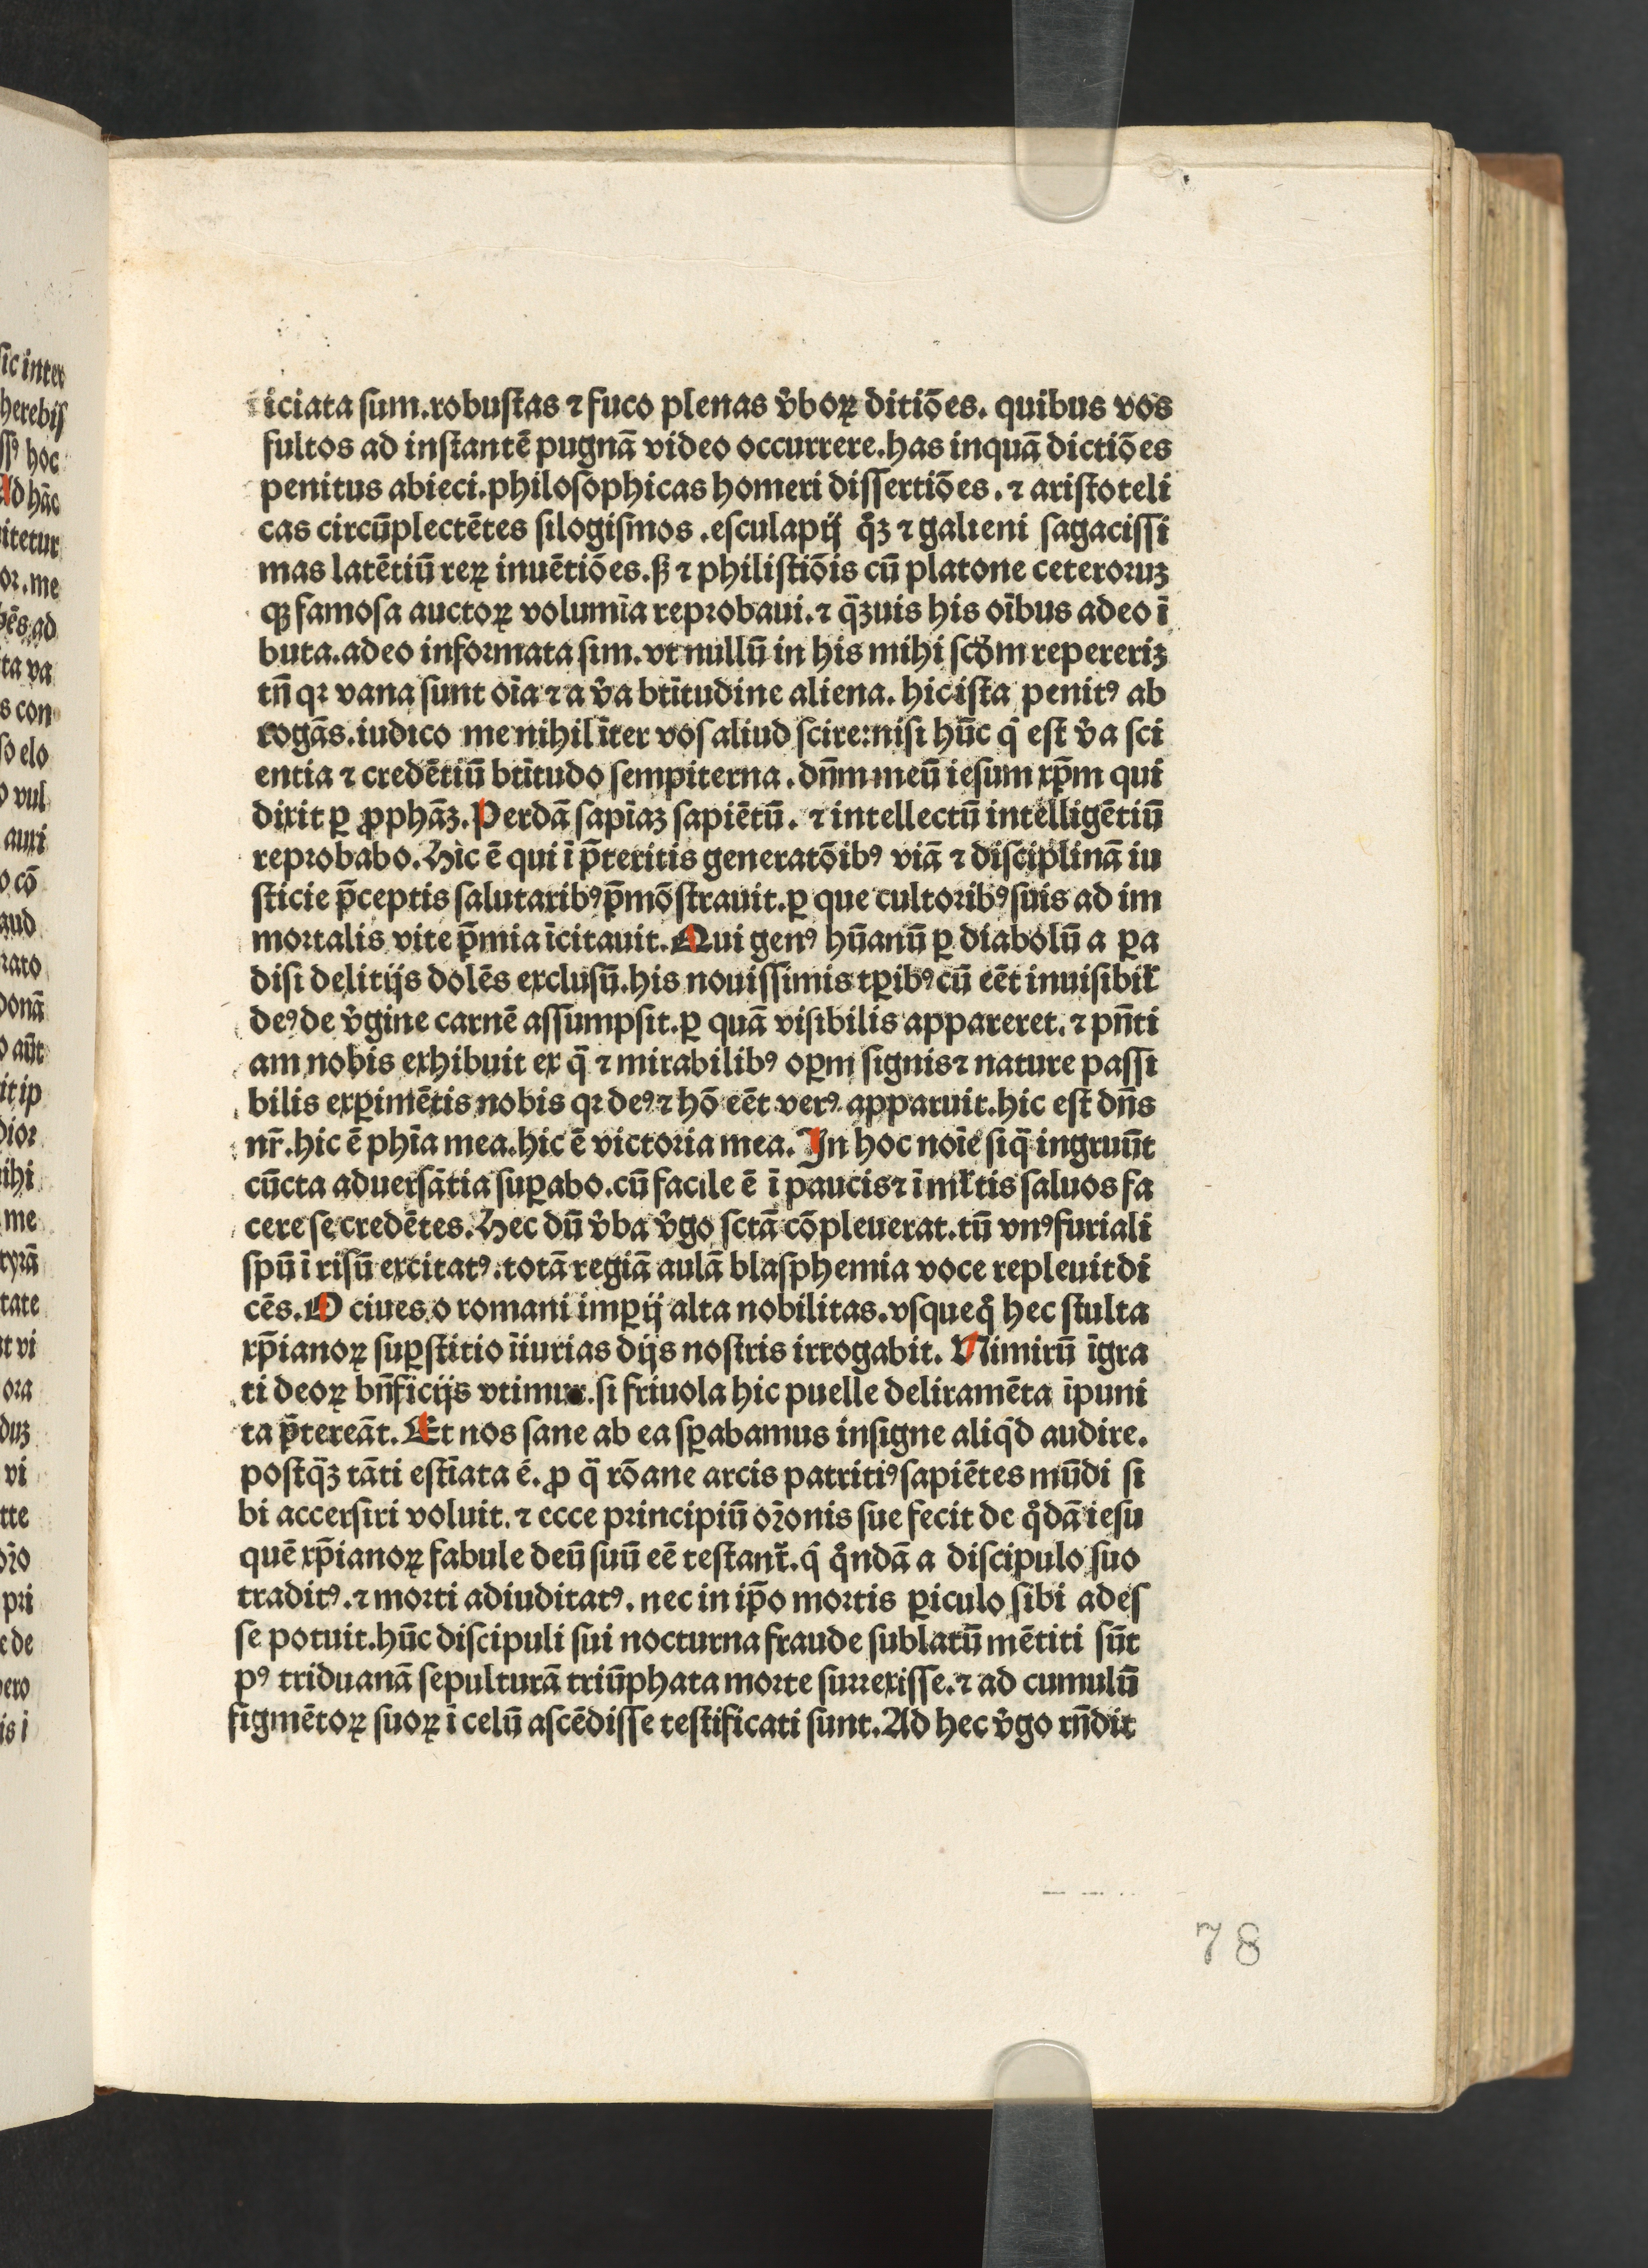 iciata sum.robustas ⁊ fuco plenas v̄boꝝ ditiōes. quibus vos
fultos ad instantē pugnā video occurrere.has inquā dictiōes
penitus abieci.philosophicas homeri dissertiōes.⁊ aristoteli
cas circūplectētes silogismos.esculapij qͣ̄ꝫ ⁊ galieni sagacissi
mas latētiū reꝝ inuētiōes.ß ⁊ philistiōis cū platone ceteroruꝫ
qꝫ famosa auctoꝝ volumīa reprobaui.⁊ qͣ̄ꝫuis his oībus adeo ī
buta.adeo informata sim.vt nullū in his mihi scd̄om repereriꝫ
tn̄ qꝛ vana sunt oīa ⁊ a v̄a btītudine aliena. hic ista penitꝰ ab
rogās.iudico me nihil īter vos aliud scire:nisi hūc qͥ est v̄a sci
entia ⁊ credētiū btītudo sempiterna.dn̄m meū iesum xp̄m qui
dixit ꝑ ꝓphāꝫ.Perdā sapīaꝫ sapiētū. ⁊ intellectū intelligētiū
reprobabo.Hic ē qui ī p̄teritis generatōibꝰ viā ⁊ disciplinā iu
sticie p̄ceptis salutaribꝰ p̄mōstrauit.ꝑ que cultoribꝰ suis ad im
mortalis vite p̄mia īcitauit.Qui genꝰ hūanū ꝑ diabolū a ꝑa
disi delitijs dolēs exclusū.his nouissimis tꝑibꝰ cū eēt inuisibiƚ
deꝰ de v̄gine carnē assumpsit.ꝑ quā visibilis appareret.⁊ pn̄ti
am nobis exhibuit ex qͣ̄ ⁊ mirabilibꝰ oꝑm signis ⁊ nature passi
bilis exꝑimētis nobis qꝛ deꝰ ⁊ hō eēt verꝰ apparuit.hic est dn̄s
nr̄.hic ē phīa mea.hic ē victoria mea. In hoc noīe siqͣ̄ ingruūt
cūcta aduersātia suꝑabo.cū facile ē ī paucis ⁊ ī mƚtis saluos fa
cere se credētes.Hec dū v̄ba v̄go sctā cōpleuerat.tū vnꝰ furiali
spū ī risū excitatꝰ.totā regiā aulā blasphemia voce repleuit di
cēs.O ciues o romani imꝑij alta nobilitas.vsquequͦ hec stulta
xp̄ianoꝝ suꝑstitio īiurias dijs nostris irrogabit. Nimirū īgra
ti deoꝝ bn̄ficijs vtimur.si friuola hic puelle deliramēta īpuni
ta p̄tereāt. Et nos sane ab ea sꝑabamus insigne aliqͥd audire.
postqͣ̄ꝫ tāti estīata ē. ꝓ qͣ̄ rōane arcis patritiꝰ sapiētes mūdi si
bi accersiri voluit.⁊ ecce principiū orōnis sue fecit de qͦdā iesu
quē xp̄ianoꝝ fabule deū suū eē testanť.qͥ qͦndā a discipulo suo
traditꝰ.⁊ morti adiuditatꝰ. nec in ip̄o mortis ꝑiculo sibi ades
se potuit.hūc discipuli sui nocturna fraude sublatū mētiti sūt
pꝰ triduanā sepulturā triūphata morte surrexisse.⁊ ad cumulū
figmētoꝝ suoꝝ ī celū ascēdisse testificati sunt.Ad hec v̄go rn̄dit
78